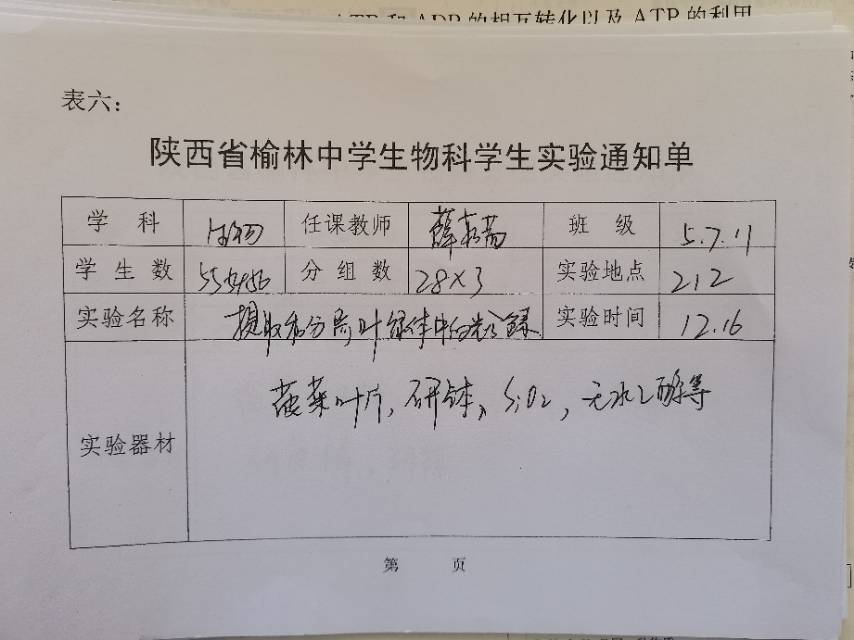 ATP 和 ADP 的相互转化以及 ATP 的利用
表六：
陕西省榆林中学生物科学生实验通知单
学 科 生物 任课教师 班 级 5.7.11
学 生 数 分 组 数 28×3 实验地点 212
实验名称 提取和分离叶绿体中的 实验时间 12.16
菠菜叶片，研钵、SiO2，无水乙醇等
实验器材
第 页